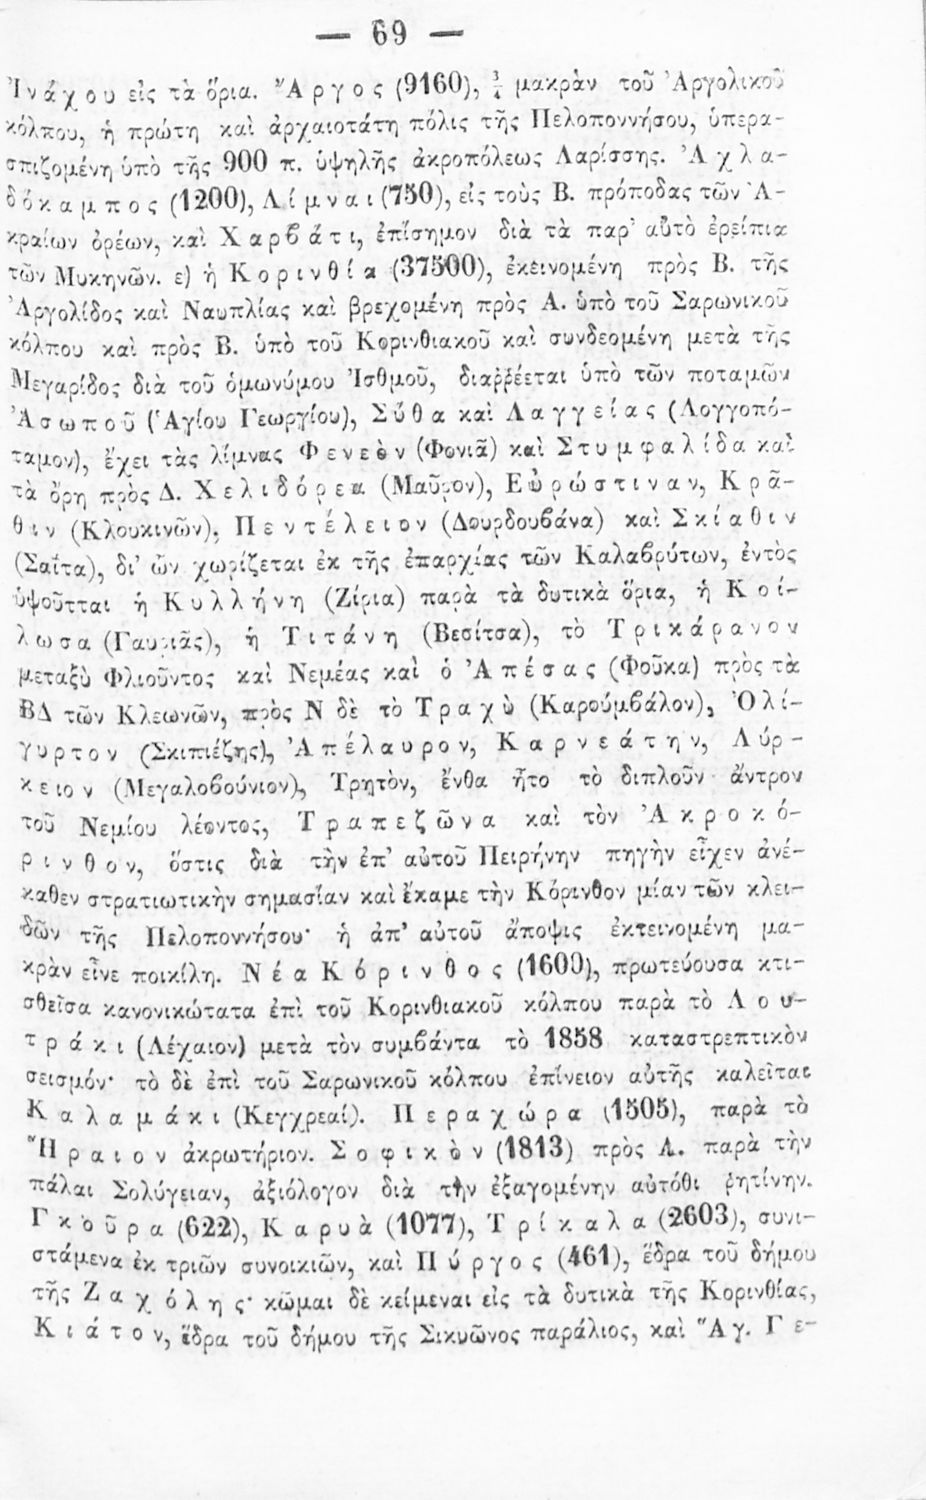 — 69 —
Ἰνάχου εἰς τὰ ὅρια. Ἄργος (9160), μακρὰν τοῦ Ἀργολικοῦ
κόλπου, ἡ πρώτη καὶ ἀρχαιοτάτη πόλις τῆς Πελοποννήσου, ὑπερα-
σπιζομένη ὑπὸ τῆς 900 π. ὑψηλῆς ἀκροπόλεως Λαρίσσης. Ἀχλα-
δόκαμπος (1200), Λίμναι (750), εἰς τοὺς Β. πρόποδας τῶν Ἀ-
κραίων ὀρέων, καὶ Χαρβάτι, ἐπίσημον διὰ τὰ παρ' αὐτὸ ἐρείπια
τῶν Μυκηνῶν. ε) ἡ Κορινθία (37500), ἐκεινομένη πρὸς Β. τῆς
Ἀργολίδος καὶ Ναυπλίας καὶ βρεχομένη πρὸς Α. ὑπὸ τοῦ Σαρωνικοῦ
κόλπου καὶ πρὸς Β. ὑπὸ τοῦ Κορινθιακοῦ καὶ συνδεομένη μετὰ τῆς
Μεγαρίδος διὰ τοῦ ὁμωνύμου Ἰσθμοῦ, διαῤῥέεται ὑπὸ τῶν ποταμῶν
Ἀσωποῦ (Ἁγίου Γεωργίου), Σύθα καὶ Λαγγείας (Λογγοπό-
ταμον), ἔχει τὰς λίμνας Φενεὸν (Φονιᾶ) καὶ Στυμφαλίδα καὶ
τὰ ὄρη πρὸς Δ. Χελιδόρεα (Μαῦρον), Εὐρώστιναν, Κρᾶ-
θιν (Κλουκινῶν), Πεντέλειον (Δουρδουβάνα) καὶ Σκίαθιν
(Σαΐτα), δι' ὧν χωρίζεται ἐκ τῆς ἐπαρχίας τῶν Καλαβρύτων, ἐντὸς
ὑψοῦται ἡ Κυλλήνη (Ζίρια) παρὰ τὰ δυτικὰ ὅρια, ἡ Κοί-
λωσα (Γαυριᾶς), ἡ Τιτάνη (Βεσίτσα), τὸ Τρικάρανον
μεταξὺ Φλιοῦντος καὶ Νεμέας καὶ ὁ Ἀπέσας (Φοῦκα) πρὸς τὰ
ΒΔ τῶν Κλεωνῶν, πρὸς Ν δὲ τὸ Τραχὺ (Καρούμβάλον), Ὀλί-
γυρτον (Σκιπιέζης), Ἀπέλαυρον, Καρνεάτην, Λύρ-
κειον (Μεγαλοβούνιον), Τρητὸν, ἔνθα ἦτο τὸ διπλοῦν ἄντρον
τοῦ Νεμίου λέοντος, Τραπεζῶνα καὶ τὸν Ἀκροκό-
ρινθον, ὅστις διὰ τὴν ἐπ' αὐτοῦ Πειρήνην πηγὴν εἶχεν ἀνέ-
καθεν στρατιωτικὴν σημασίαν καὶ ἔκαμε τὴν Κόρινθον μίαν τῶν κλει-
δῶν τῆς Πελοποννήσου· ἡ ἀπ' αὐτοῦ ἄποψις ἐκτεινομένη μα-
κρὰν εἶνε ποικίλη. Νέα Κόρινθος (1600), πρωτεύουσα κτι-
σθεῖσα κανονικώτατα ἐπὶ τοῦ Κορινθιακοῦ κόλπου παρὰ τὸ Λου-
τράκι (Λέχαιον) μετὰ τὸν συμβάντα τὸ 1858 καταστρεπτικὸν
σεισμόν· τὸ δὲ ἐπὶ τοῦ Σαρωνικοῦ κόλπου ἐπίνειον αὐτῆς καλεῖται
Καλαμάκι (Κεγχρεαί). Περαχώρα (1505), παρὰ τὸ
Ἥραιον ἀκρωτήριον. Σοφικὸν (1813) πρὸς Α. παρὰ τὴν
πάλαι Σολύγειαν, ἀξιόλογον διὰ τὴν ἐξαγομένην αὐτόθι ῥητίνην.
Γκοῦρα (622), Καρυὰ (1077), Τρίκαλα (2603), συνι-
στάμενα ἐκ τριῶν συνοικιῶν, καὶ Πύργος (461), ἕδρα τοῦ δήμου
τῆς Ζαχόλης· κῶμαι δὲ κείμεναι εἰς τὰ δυτικὰ τῆς Κορινθίας,
Κιάτον, ἕδρα τοῦ δήμου τῆς Σικυῶνος παράλιος, καὶ Ἅγ. Γε-